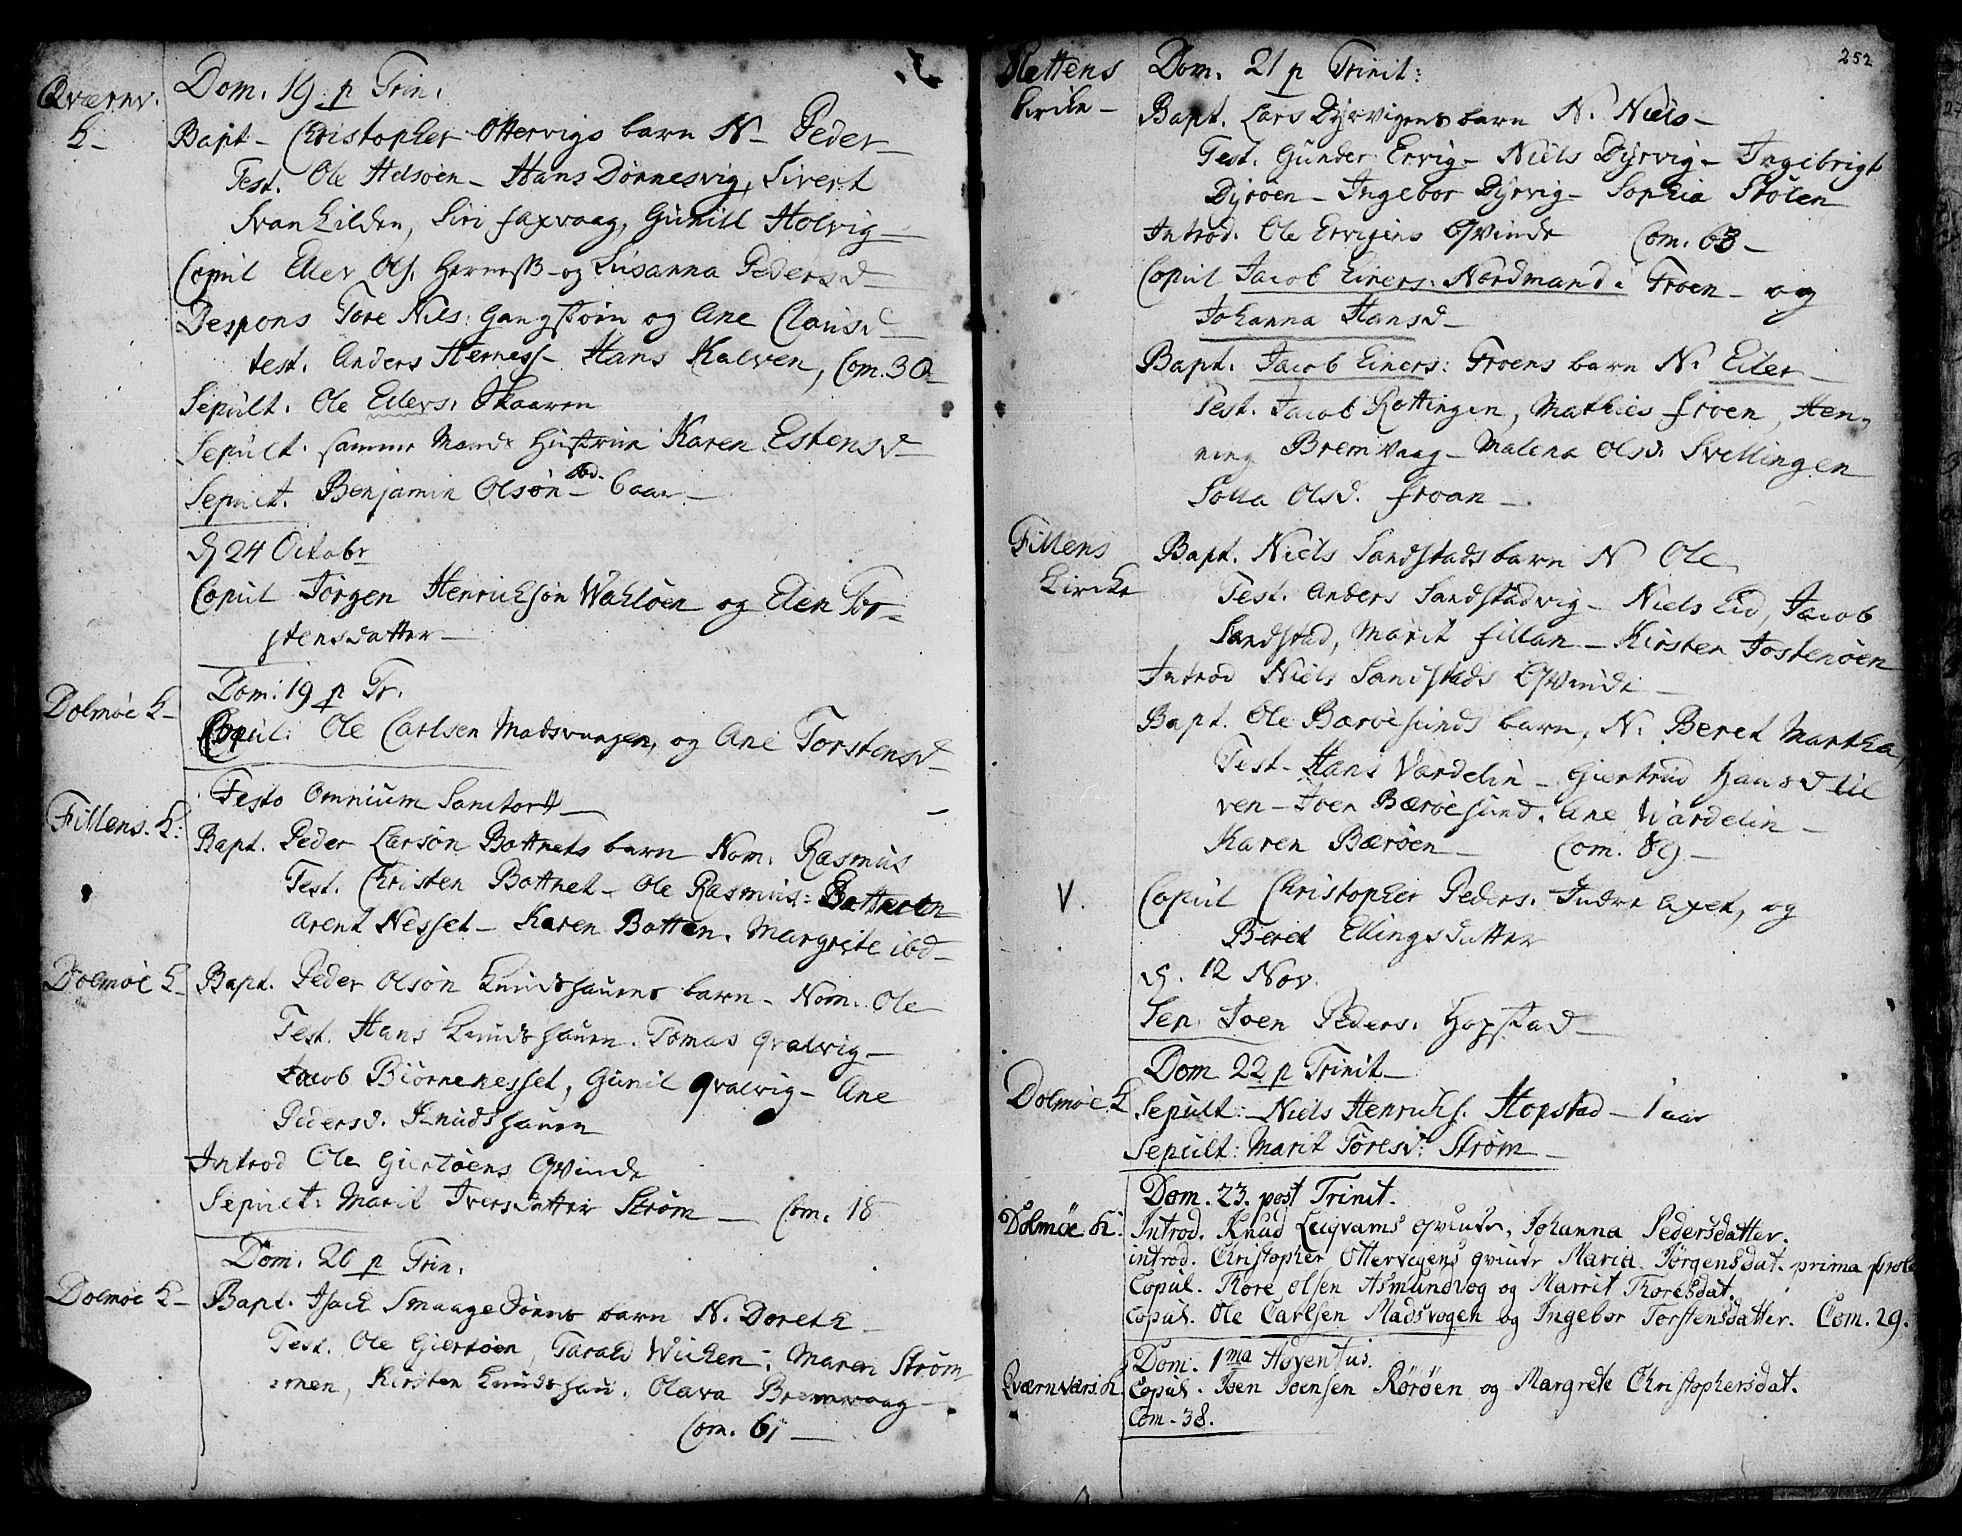 Qværnv.
K-
Dom. 19 p Trin.
Bapt- Christopher Ottervigs barn N- Peder-
Test. Ole Helsöen- Hans Dönnesvig, Sivert
Svankilden, Siri faxvaag, Gunill Holvig-
Copul Eiler Ols. og Susanna Pedersd-
Despons Tore Nils: og Ane Clausd-
test. Anders Herness- Hans Kalven, Com. 30-
Sepult. Ole Eilers. Skaaren
Sepult. samme Mands Hustrue Karen Estensd-
Sepult. Benjamin Olsön ibd. 6 aar-
d 24 Octobr
Copul Jörgen Henrichsön Wahlöen og Elen Tor=
stensdatter-
Dolmöe K-
Dom. 19 p Tr.
Copul: Ole Carlsen Madsvaagen, og Ane Torstensd-
Festo Omnium Sanctor-
Fillens. K:
Bapt. Peder Larsön Bottnets barn Nom. Rasmus
Test. Christen Bottnet- Ole Rasmus: Bottnet
Arent Nesset- Karen Botten. Margrete ibd-
Dolmöe K-
Bapt. Peder Olsön Knudshauens barn- Nom. Ole
Test. Hans Knudshauen. Tomas Qvalvig-
Jacob Biörnenesset, Gunil Qvalvig- Ane
Pedersd. Knudshauen
Introd Ole Giertöens Qvinde
Sepult: Marit Iversdatter Ström- Com. 18
Dom. 20 p Trin.
Dolmöe K-
Bapt. Isach Smaage barn N. Doreth-
Test. Ole Giertöen, Tarald Wichen, Maren Ström
men, Kirsten Knudshau. Olava Bremvaag-
Com. 61-
252
Slettens
kirke-
Dom. 21 p Trinit:
Bapt. Lars Dyrvigens barn N. Niels-
Test. Gunder Ervig- Niels Dyrvig- Ingebrigt
Dyröen- Ingebor Dyrvig- Sophia Stölen
Introd. Ole Ervigens Qvinde Com. 63-
Copul Jacob Einers: Nordmand i Froen- og
Johanna Hansd-
Bapt. Jacob Einers: Froens barn N. Eiler-
Test. Jacob Rottingen, Mathies froen, Hen=
ning Bremvaag- Malena Olsd. Svellingen
Olsd. froan-
Fillens
Kircke
Bapt. Niels Sandstads barn N Ole
Test. Anders Sandstadvig- Niels Eid, Jacob
Sandstad, Marit fillan- Kirsten Jostenöen
Introd Niels Sandstads Qvinde-
Bapt. Ole Baröesunds barn, N. Beret Martha
Test- Hans Vardelin- Giertrud Hansd Ul
ven- Joen Bæröesund. Ane Wardelin-
Karen Bæröen- Com. 89-
V.
Copul Christopher Peders. Indre Axet, og
Beret Ellingsdatter
d. 12 Nov.
Sep. Joen Peders. Hopstad-
Dom 22 p Trinit-
Dolmöe. K
Sepult:- Niels Henrichs. Hopstad- 1 aar
Sepult: Marit Töresd: Ström-
Dom. 23. post Trinit.
Dolmöe K.
Introd. Knud Legvams qvinde, Johanna Pedersdatter.
introd. Christopher Ottervigens qvinde Maria Jörgensdat. prima
Copul. Thore Olsen Asmundvog og Marrit Thoresdat.
Copul. Ole Carlsen Madsvogen og Ingebor Torstensdatter. Com. 29.
Dom. 1ma Adventus.
Qværnværs. K.
Copul. Joen Joensen Röröen og Margrete Christophersdat.
Com- 38.